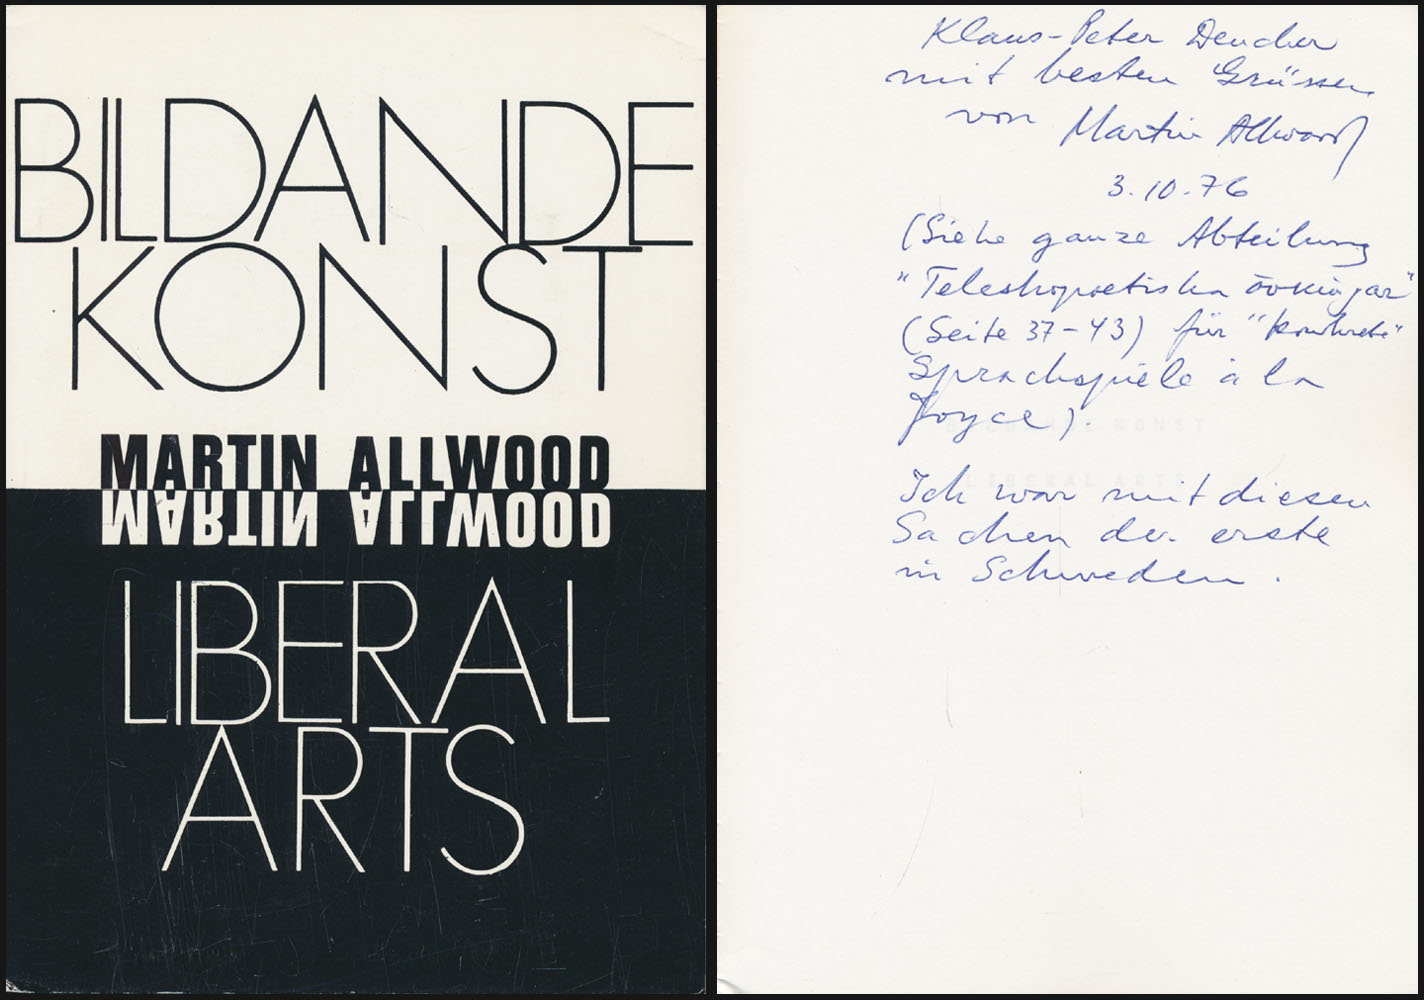 BILDANDE
KONST
MARTIN ALLWOOD
MARTIN ALLWOOD
LIBERAL
ARTS
Klaus-Peter Dencker
mit besten Grüssen
von Martin Allwood
3.10.76
(Siehe ganze Abteilung
"Teleskopoetiska övningar"
(Seite 37-43) für "konkrete"
Sprachspiele à la
Joyce).
KONST
LIBERAL ARTS
Ich war mit diesen
Sachen der erste
in Schweden.